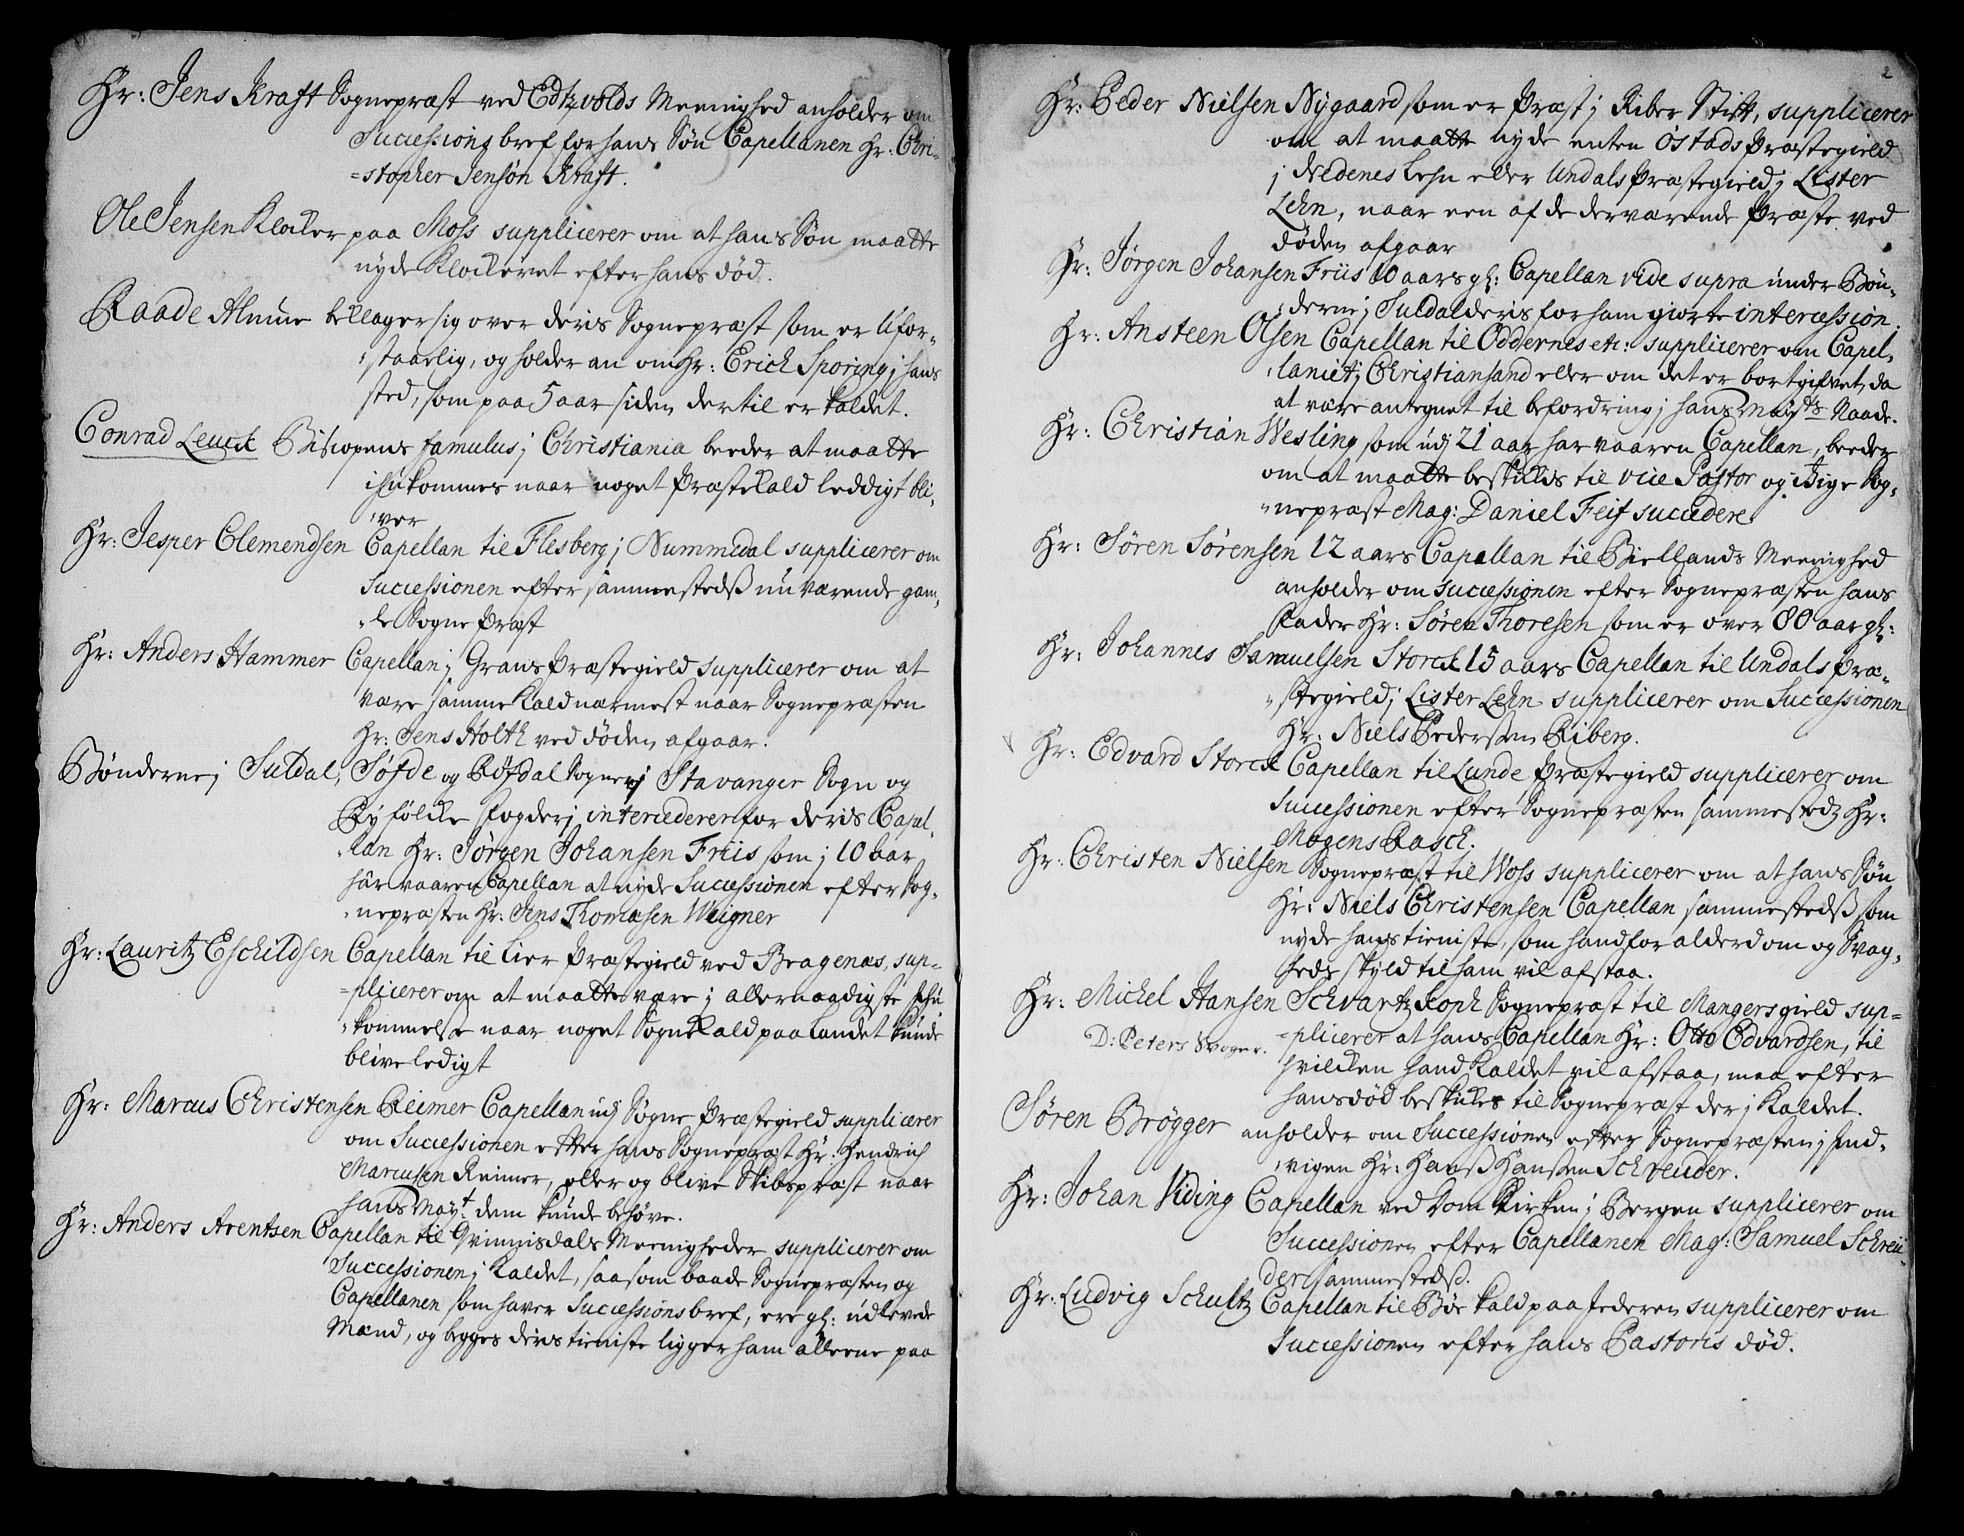 Hr: Jens Kraft Sognepræst ved Edtzvolds Meenighed anholder om
Successions bref for hans Søn Capellanen Hr: Chri-
=stopher Jensøn Kraft.
Ole Jensen Klocker paa Moss supplicerer om at hans Søn maatte
nyde Klockeret efter hans død.
Raade Almue beklager sig over deris Sognepræst som er Ufor-
staarlig, og holder an om Hr: Erich Sporing i hans
sted, som paa 5 aar siden dertil er kaldet.
Conrad Leuch Biscopens famulus i Christiania beeder at maatte
ihukommes naar noget Præstekald leddigt bli-
ver
Hr: Jesper Clemendsen Capellan til Flesberg i Nummedal supplicerer om
Successionen efter sammestedß nu værende gam-
le Sogne Præst
Hr: Anders Hammer Capellan i Grans Præstegield supplicerer om at
være samme Kald nærmest naar Sognepræsten
Hr: Jens Holth ved døden afgaar.
Bønderne i Suldal, Søfde og Røfdal Sogner i Stavanger Sogn og
Ryfölcke fogderi intercederer for deris Capel-
lan Hr: Jørgen Johansen Friis som i 10 aar
har vaaren Capellan at nyde Successionen efter Sog-
nepræsten Hr: Jens Thomesen Weigner
Hr: Lauritz Eschildsen Capellan til Lier Præstegield ved Bragenæs, sup-
=plicerer om at maatte være i allernaadigste Ihu
kommelse naar noget Sogne Kald paa Landet kunde
blive ledigt
Hr: Marcus Christensen Reimer Capellan udj Sogne Præstegield supplicerer
om Successionen efter hans Sognepræst Hr: Hendrich
Marcussen Reimer, eller og blive Skibspræst naar
hans Mayt. dem kunde behøve.
Hr: Anders Arentsen Capellan til Qvinnisdals Meenigheder supplicerer om
Successionen i Kaldet, saasom baade Sognepræsten og
Capellanen som haver Successions bref, ere gl: udlevede
Mænd, og begges deris tieniste ligger ham alleene paa
2
Hr: Peder Nielsen Nygaard som er Præst i Riber Stift, supplicerer
om at maatte nyde enten Østads Præstegield
i Nedenes Lehn eller Undals Præstegield i Lister
Lehn, naar een af de derværende Præste ved
døden afgaar
Hr: Jørgen Johansen Friis 10 aars gl: Capellan vide supra under Bøn-
derne i Suldal deris for ham giorte intercession.
Hr: Ansteen Olsen Capellan til Oddernes etc: supplicerer om Capel-
laniet i Christiansand eller om det er bortgifvet, da
at være antegnet til befordring i hans Mayts Naade.
Hr: Christian Wesling som udj 21 aar har vaaren Capellan, beeder
om at maatte beskickis til vice Pastor og i Fige Sog-
nepræst Mag: Daniel Feif succedere
Hr: Søren Sørensen 12 aars Capellan til Biellands Meenighed
anholder om Successionen efter Sognepræsten hans
Fader Hr: Søren Thoresen som er over 80 aar gl:
Hr: Johannes Samuelsen Storck 15 aars Capellan til Undals Præ-
stegield i Lister Lehn supplicerer om Successionen
Hr: Niels Pederssen Riberg.
Hr: Edvard Storck Capellan til Lunde Præstegield supplicerer om
Successionen efter Sognepræsten sammestedz Hr:
Mogens Rasch.
Hr: Christen Nielsen Sognepræst til Woss supplicerer om at hans Søn
Hr: Niels Christensen Capellan sammestedß som
nyde hans tieniste, som hand for alderdom og Svag-
heds skyld til ham vil afstaa.
Hr: Michel Hansen Schvartzkoph Sognepræst til Mangers gield sup-
D: Peters Svoger.
=plicerer at hans Capellan Hr: Otto Edvardsen, til
hvilcken hand Kaldet vil afstaa, maa efter
hans død beskickes til Sognepræst der i Kaldet.
Søren Brøgger anholder om Successionen efter Sognepræsten i Ind-
vigen Hr: Hanß Hanssen Schreuder.
Hr: Johan Viding Capellan ved Dom Kirken i Bergen supplicerer om
Successionen efter Capellanen Mag: Samuel Schreu
der sammestedß.
Hr: Ludvig Schultz Capellan til Bøe kald paa Jederen supplicerer om
Successionen efter hans Pastoris død.